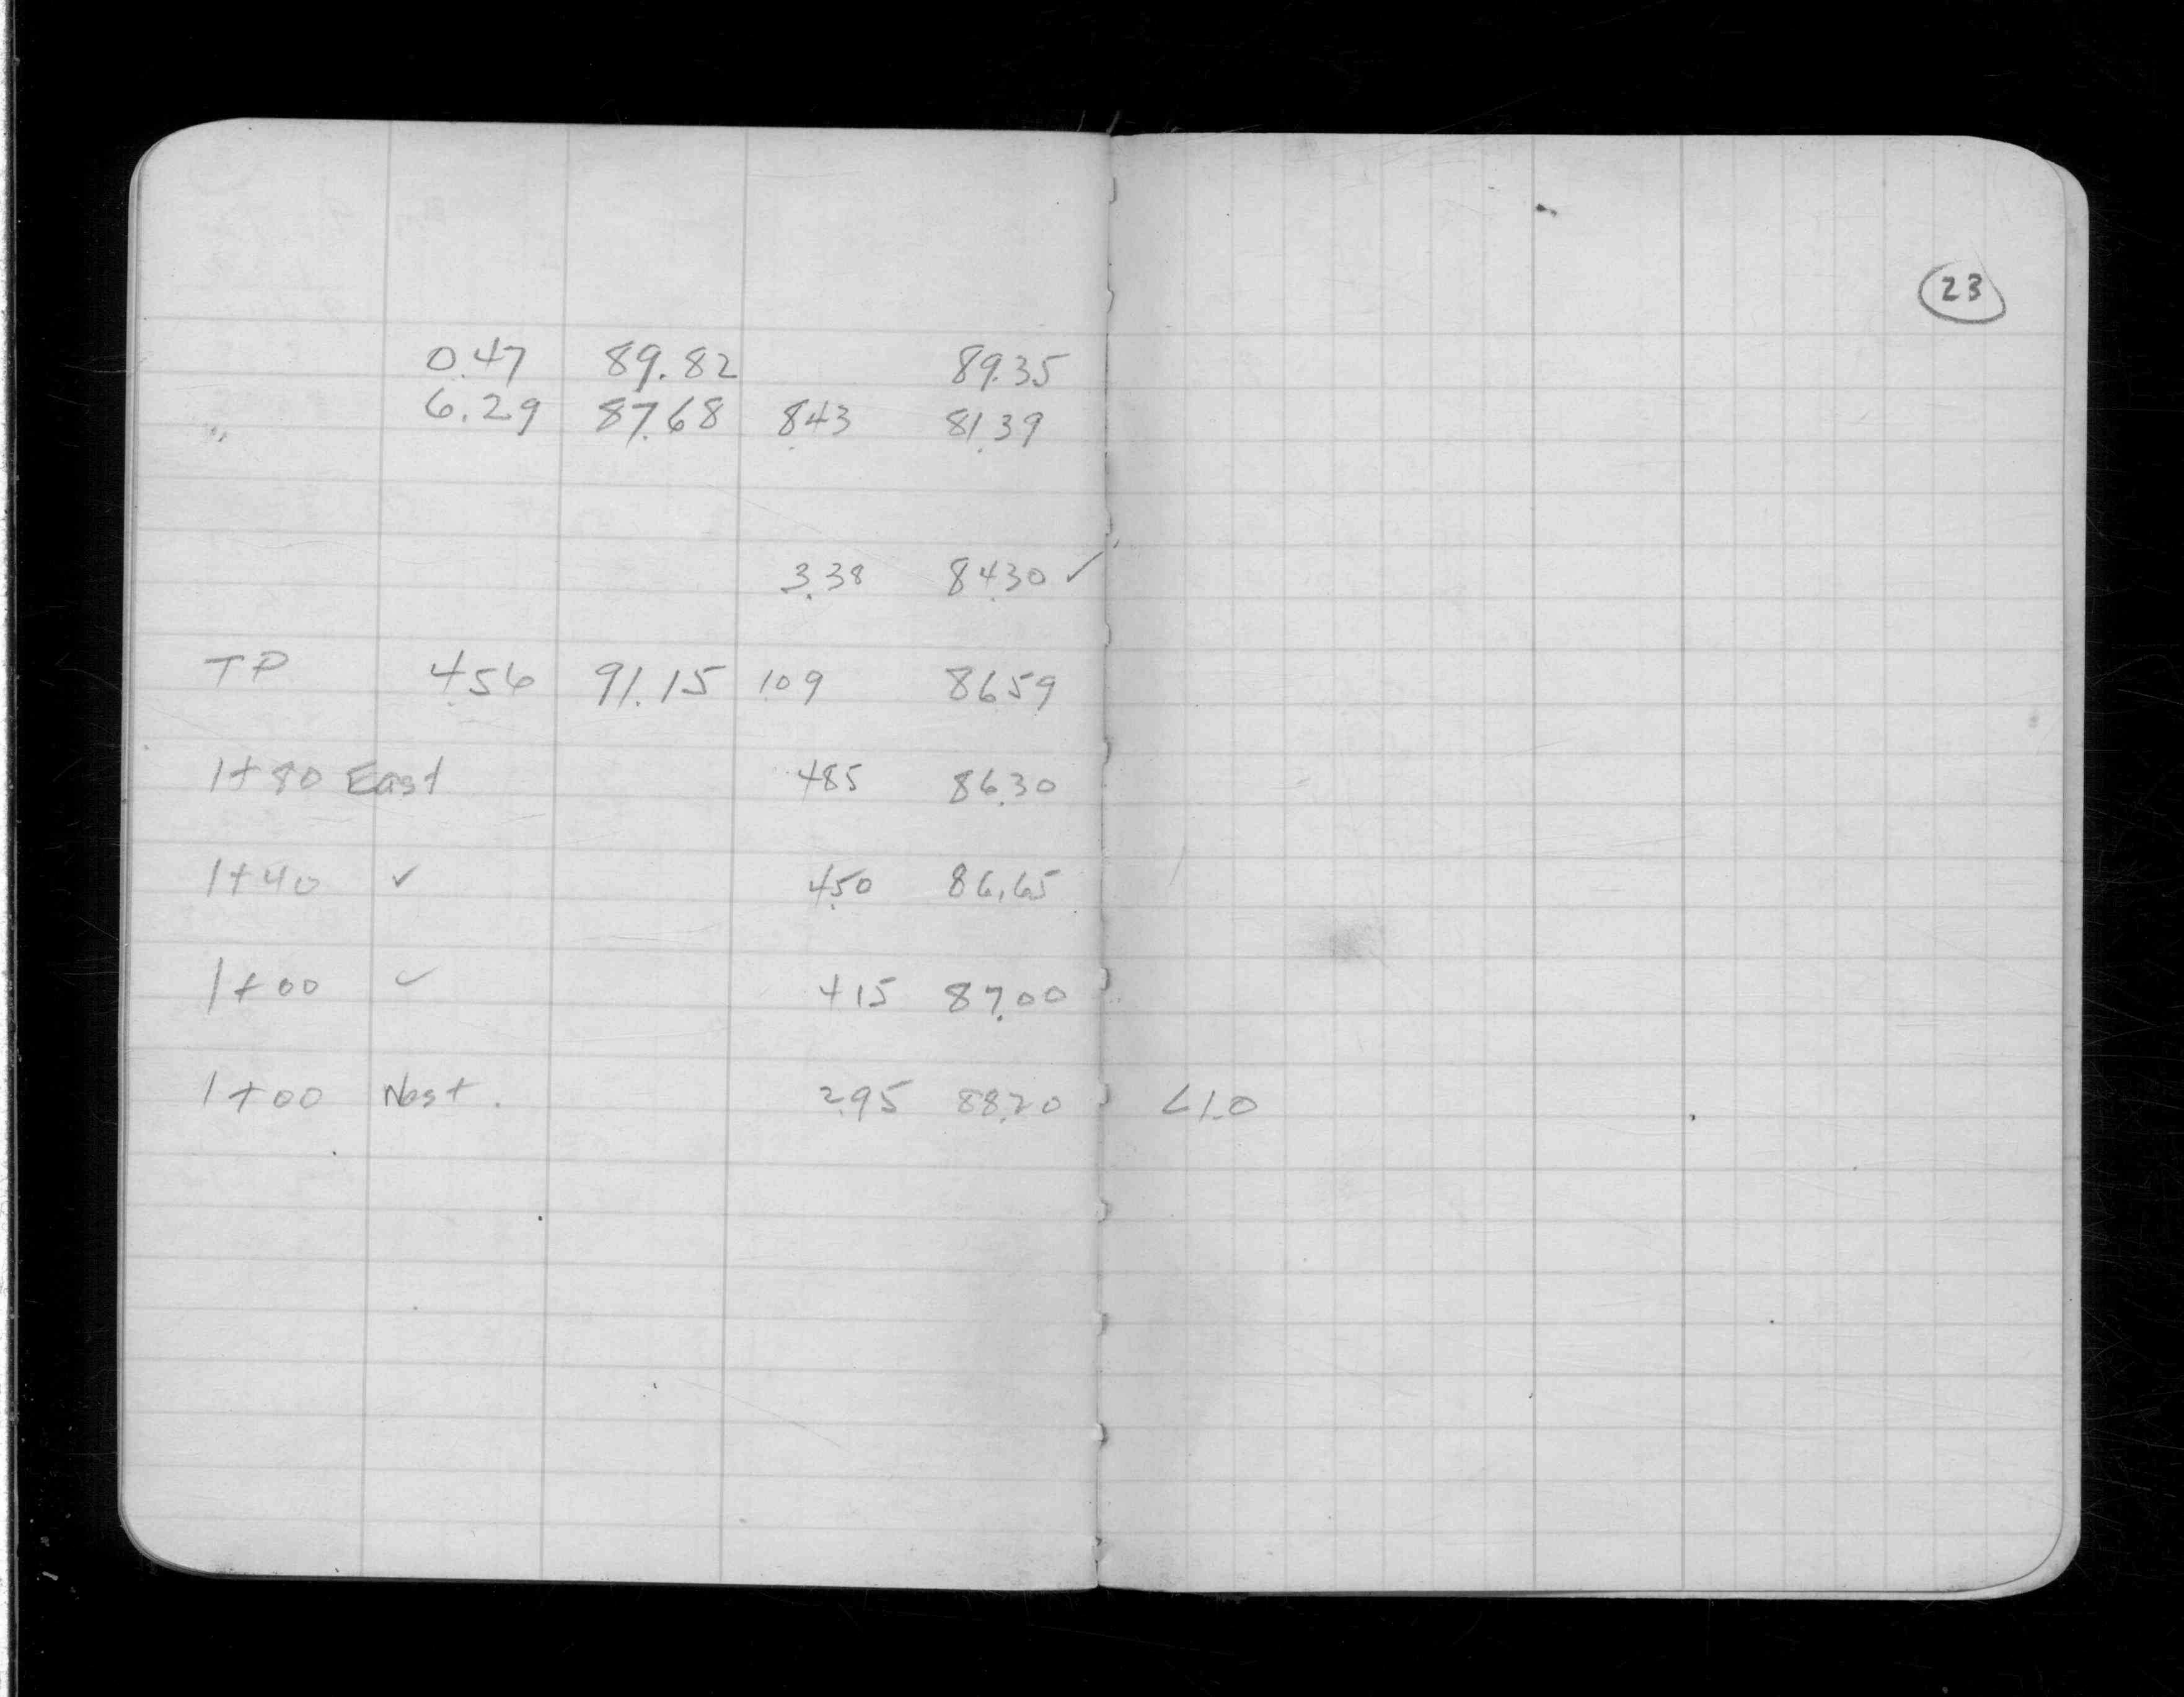 23
0.47 89.82 89.35
" 6.29 87.68 8.43 81.39
3.38 84.30 ✓
TP 4.56 91.15 1.09 86.59
1+80 East 4.85 86.30
1+40 ✓ 4.50 86.65
1+00 ✓ 4.15 87.00
1+00 West. 2.95 88.20 <1.0